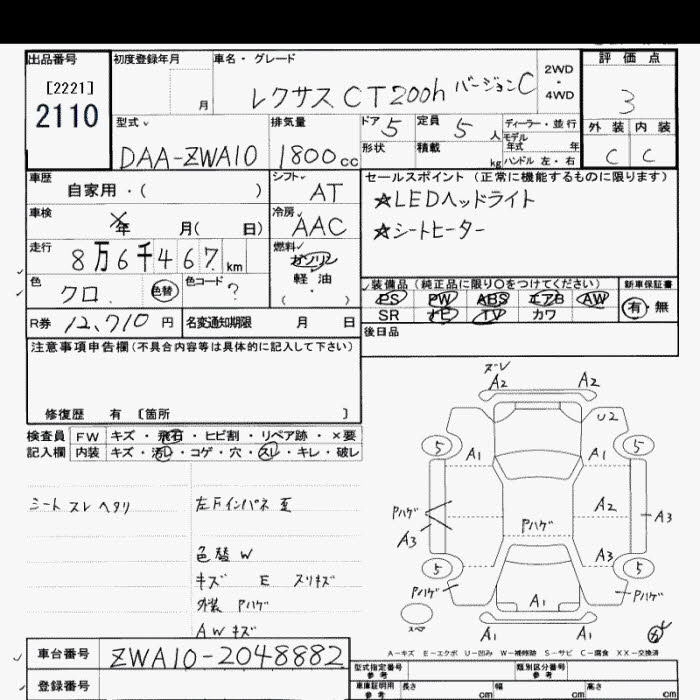 出品番号
[2221]
2110
初度登録年月
月
車名・グレード
レクサス CT200h バージョンC
2WD
・
4WD
評価点
3
外装 内装
C C
型式
DAA-ZWA10
排気量
1800cc
ドア 5
定員 5 人
形状
積載 kg
ディーラー・並行
モデル
年式 年
ハンドル 左・右
車歴
自家用・( )
シフト
AT
車検
年 月( 日)
冷房
AAC
走行
8万6千467km
燃料
ガソリン
軽油
( ・ )
色
クロ
色替
色コード
?
R券 12,710 円
名変通知期限 月 日
セールスポイント (正常に機能するものに限ります)
☆LEDヘッドライト
☆シートヒーター
装備品(純正品に限り○をつけてください)
PS PW ABS エアB AW
SR ナビ TV カワ
新車保証書
有・無
後日品
注意事項申告欄(不具合内容等は具体的に記入して下さい)
修復歴 有 〔箇所 〕
検査員
記入欄
FW キズ・飛石・ヒビ割・リペア跡・×要
内装 キズ・汚レ・コゲ・穴・スレ・キレ・破レ
シート スレ ヘタリ
色替 W
キズ E スリキズ
外装 Pハゲ
AW キズ
ズレ
A2 A2
U2
5 A1 A1 5
Pハゲ
Pハゲ
A2
A3
A3
A3
5 5
Pハゲ
A1
Pハゲ
A1 A1
スペア
A-キズ E-エクボ U-凹み W-補修跡 S-サビ C-腐食 XX-交換済
車台番号
ZWA10-2048882
登録番号
型式指定番号
参考
類別区分番号
参考
車庫証明用
参考
長さ cm
幅 cm
高さ cm